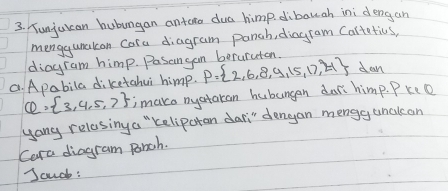 3. Tunjukan hubungan antara dua himp. dibawah ini dengan
menggunakan cara diagram panah, diagram Cartetius,
diagram himp. Pasangan berurutan.
a. Apabila diketahui himp. P = {2,6,8,9,15,17,21} dan
Q = {3,4,5,7}; maka nyatakan hubungan dari himp. P ke Q
yang relasinya "kelipatan dari" dengan menggunakan
Cara diagram Panah.
Jawab: